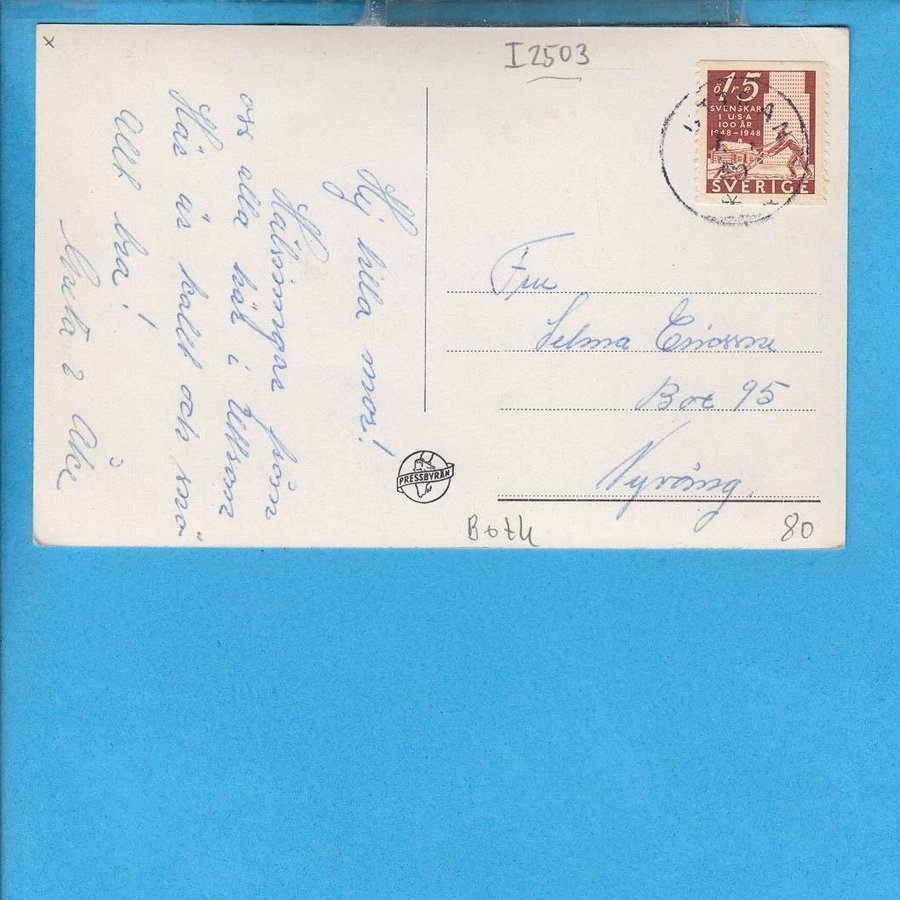 x
I 2503
15
öre
SVENSKAR
I USA
100 ÅR
1848-1948
SVERIGE
Hej lilla mor!
Hälsningar från
oss alla här i
Här är kallt och snö
Allt bra!
Greta & Åke
PRESSBYRÅN
Fru
Selma Ericsson
Box 95
Nyvång.
80